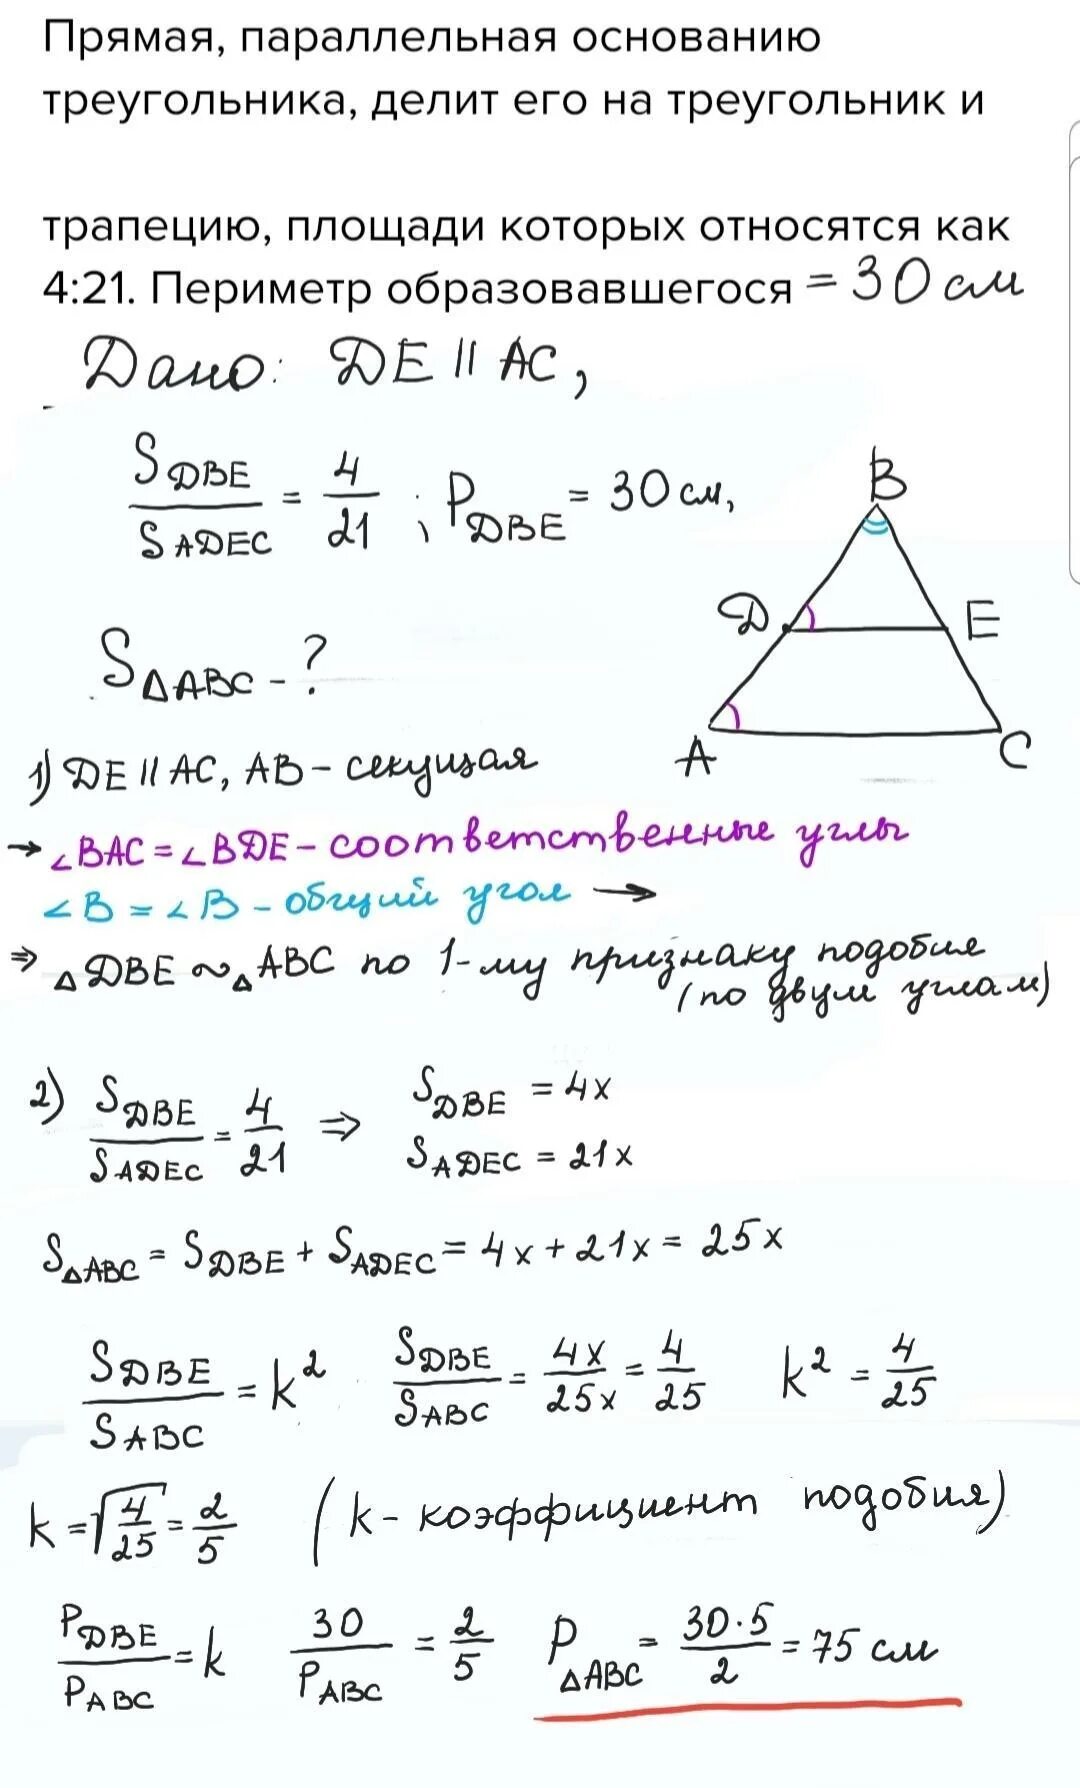 Прямая, параллельная основанию
треугольника, делит его на треугольник и
трапецию, площади которых относятся как
4:21. Периметр образовавшегося = 30 см
Дано: DE || AC,
S DBE / S ADEC = 4/21 ; P DBE = 30 см,
B
D E
S △ABC - ?
A C
1) DE || AC, AB - секущая
→ ∠BAC = ∠BDE - соответственные углы
∠B = ∠B - общий угол →
⇒ △DBE ~ △ABC по 1-му признаку подобия
(по двум углам)
2) S DBE / S ADEC = 4/21 ⇒ S DBE = 4x
S ADEC = 21x
S △ABC = S DBE + S ADEC = 4x + 21x = 25x
S DBE / S ABC = k² S DBE / S ABC = 4x/25x = 4/25 k² = 4/25
k = √4/25 = 2/5 (k - коэффициент подобия)
P DBE / P ABC = k 30 / P ABC = 2/5 P △ABC = 30·5/2 = 75 см